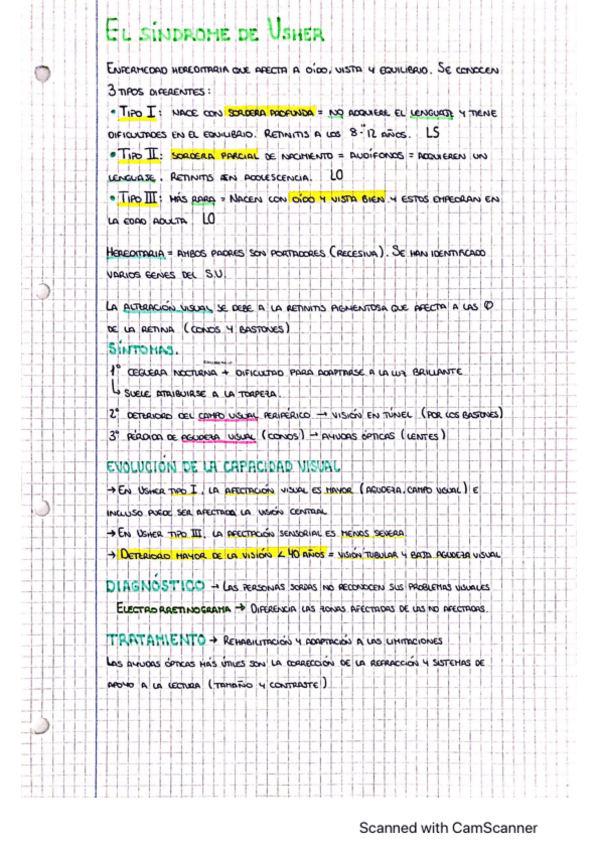 EL SÍNDROME DE USHER
ENFERMEDAD HEREDITARIA QUE AFECTA A OÍDO, VISTA Y EQUILIBRIO. SE CONOCEN
3 TIPOS DIFERENTES:
• TIPO I: NACE CON SORDERA PROFUNDA = NO ADQUIERE EL LENGUAJE Y TIENE
DIFICULTADES EN EL EQUILIBRIO. RETINITIS A LOS 8-12 AÑOS. LS
• TIPO II: SORDERA PARCIAL DE NACIMIENTO = AUDÍFONOS = ADQUIEREN UN
LENGUAJE. RETINITIS EN ADOLESCENCIA. LO
• TIPO III: MÁS RARA = NACEN CON OÍDO Y VISTA BIEN Y ESTOS EMPEORAN EN
LA EDAD ADULTA LO
HEREDITARIA = AMBOS PADRES SON PORTADORES (RECESIVA). SE HAN IDENTIFICADO
VARIOS GENES DEL S.U.
LA ALTERACIÓN VISUAL SE DEBE A LA RETINITIS PIGMENTOSA QUE AFECTA A LAS
DE LA RETINA (CONOS Y BASTONES)
SÍNTOMAS.
1º CEGUERA NOCTURNA + DIFICULTAD PARA ADAPTARSE A LA LUZ BRILLANTE
↳ SUELE ATRIBUIRSE A LA TORPEZA.
2º DETERIORO DEL CAMPO VISUAL PERIFÉRICO → VISIÓN EN TÚNEL (POR LOS BASTONES)
3º PÉRDIDA DE AGUDEZA VISUAL (CONOS) → AYUDAS ÓPTICAS (LENTES)
EVOLUCIÓN DE LA CAPACIDAD VISUAL
→ EN USHER TIPO I, LA AFECTACIÓN VISUAL ES MAYOR (AGUDEZA, CAMPO VISUAL) E
INCLUSO PUEDE SER AFECTADA LA VISIÓN CENTRAL
→ EN USHER TIPO III, LA AFECTACIÓN SENSORIAL ES MENOS SEVERA.
→ DETERIORO MAYOR DE LA VISIÓN < 40 AÑOS = VISIÓN TUBULAR Y BAJA AGUDEZA VISUAL
DIAGNÓSTICO → LAS PERSONAS SORDAS NO RECONOCEN SUS PROBLEMAS VISUALES
ELECTRORRETINOGRAMA → DIFERENCIA LAS ZONAS AFECTADAS DE LAS NO AFECTADAS.
TRATAMIENTO → REHABILITACIÓN Y ADAPTACIÓN A LAS LIMITACIONES
LAS AYUDAS ÓPTICAS MÁS ÚTILES SON LA CORRECCIÓN DE LA REFRACCIÓN Y SISTEMAS DE
APOYO A LA LECTURA (TAMAÑO Y CONTRASTE)
Scanned with CamScanner